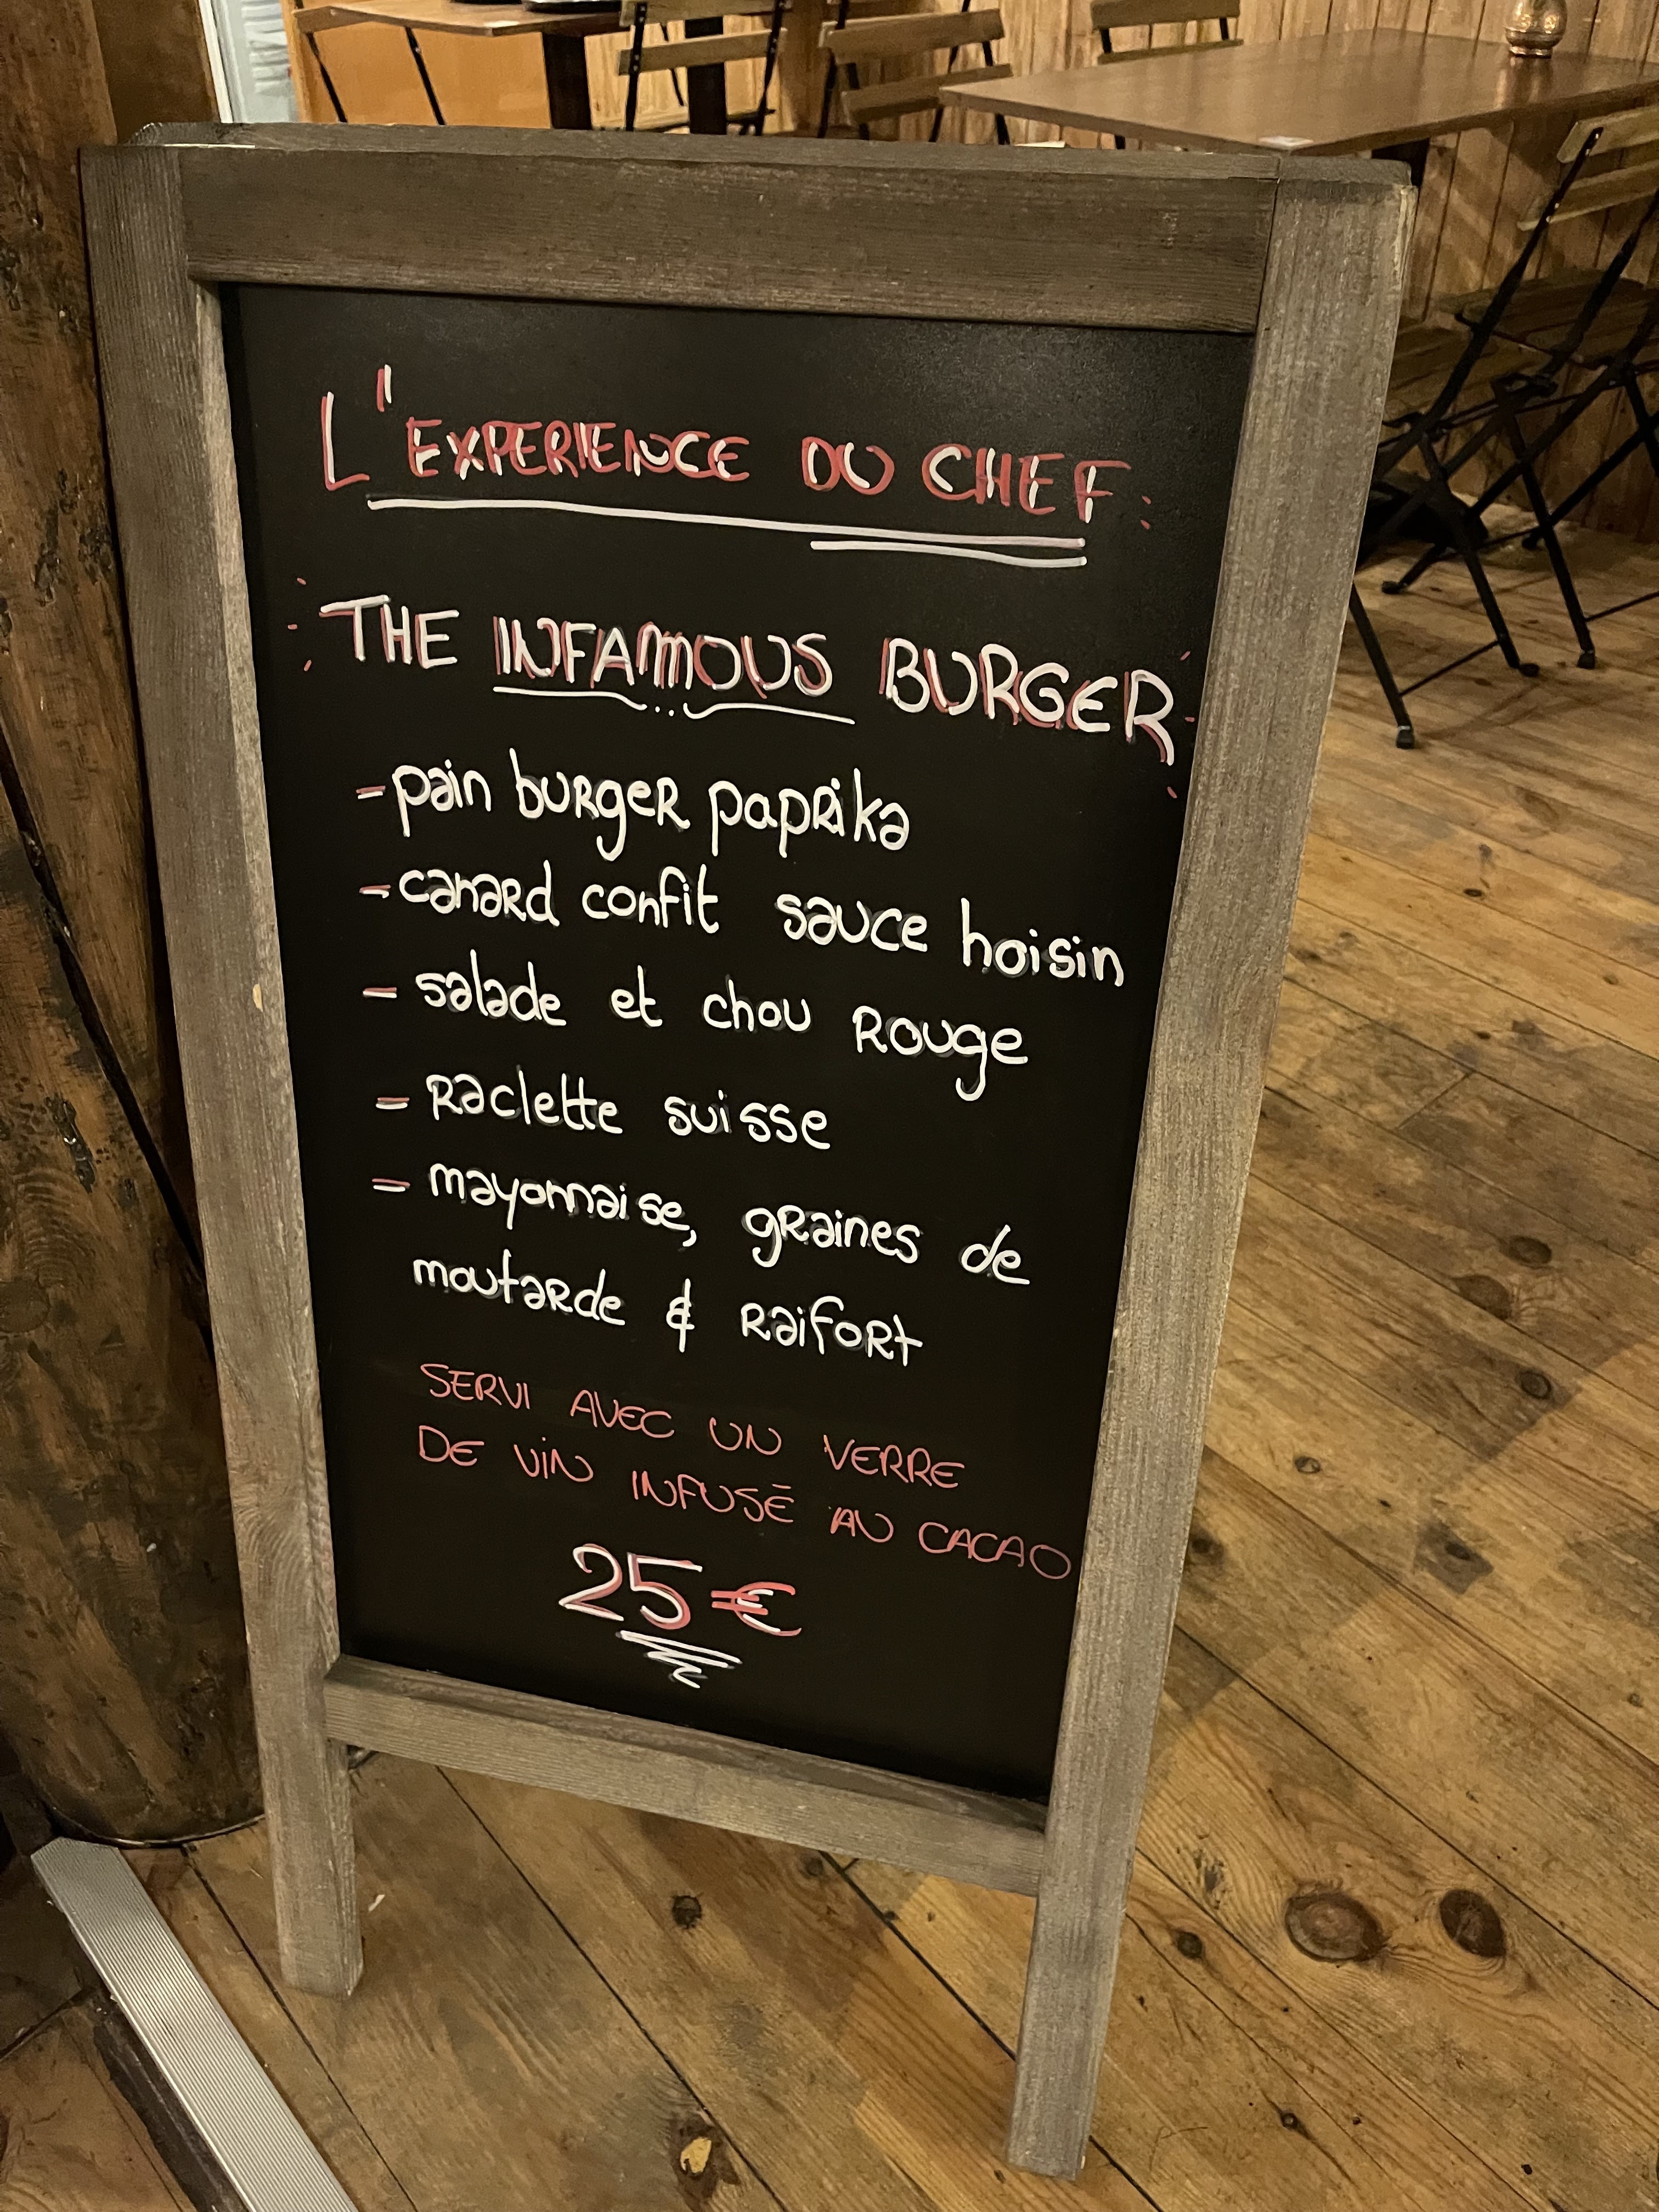 L'EXPERIENCE DU CHEF:
THE INFAMOUS BURGER
- pain burger paprika
- canard confit sauce hoisin
- salade et chou Rouge
- Raclette suisse
- mayonnaise, graines de
moutarde & Raifort
SERVI AVEC UN VERRE
DE VIN INFUSÉ AU CACAO
25€